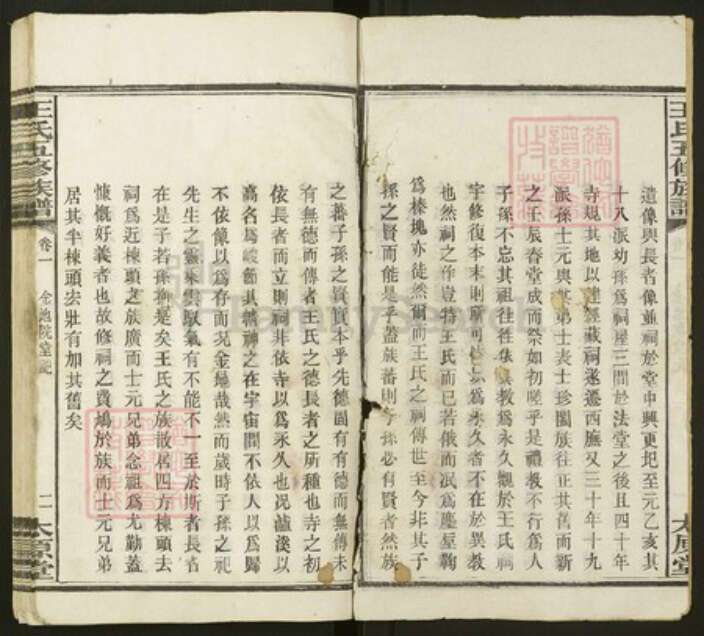 王氏五修族譜
遺像與長者像並祠於堂中興更圯至元乙亥其
十八派幼孫為祠屋三間於法堂之後且四十年
寺規其地以建經藏祠遂遷西廡又三十年十九
派孫士元與其弟士表士珍圖族往正其舊而新
之壬辰春堂成而祭如初嗟乎是禮教不行為人
子孫不忘其祖往往依異教為永久觀於王氏祠
宇修復本末則所可依以為永久者不在於異教
也然祠之作豈特王氏而已若俄而泯為塵壟鞠
為榛塊亦徒然爾而王氏之祠傳世至今非其子
孫之賢而能是乎蓋族蕃則子孫必有賢者然族
太原堂
之蕃子孫之賢實本乎先德固有有德而無傳未
有無德而傳者王氏之德長者之所種也寺之初
依長者而立則祠非依寺以為永久也况濂溪以
高名為峻節其精神之在宇宙間不依人以為歸
不依像以為存而况金地哉然而歲時子孫之祀
先生之靈乘雲馭氣有不能不一至於斯者長者
在是子若孫抑是矣王氏之族散居四方棟頭去
祠為近棟頭之族廣而士元兄弟念祖為尤勤蓋
慷慨好義者也故修祠之費鳩於族而士元兄弟
居其半棟頭宏壯有加其舊矣
王氏五修族譜
卷一
金地院堂記
二
太原堂